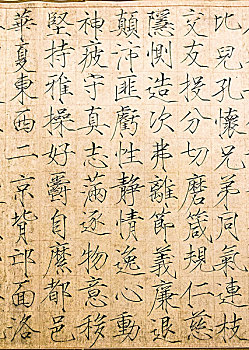 比兒孔懷兄弟同氣連枝
交友投分切磨箴規仁慈
隱惻造次弗離節義廉退
顛沛匪虧性靜情逸心動
神疲守真志滿逐物意移
堅持雅操好爵自縻都邑
華夏東西二京背邙面洛